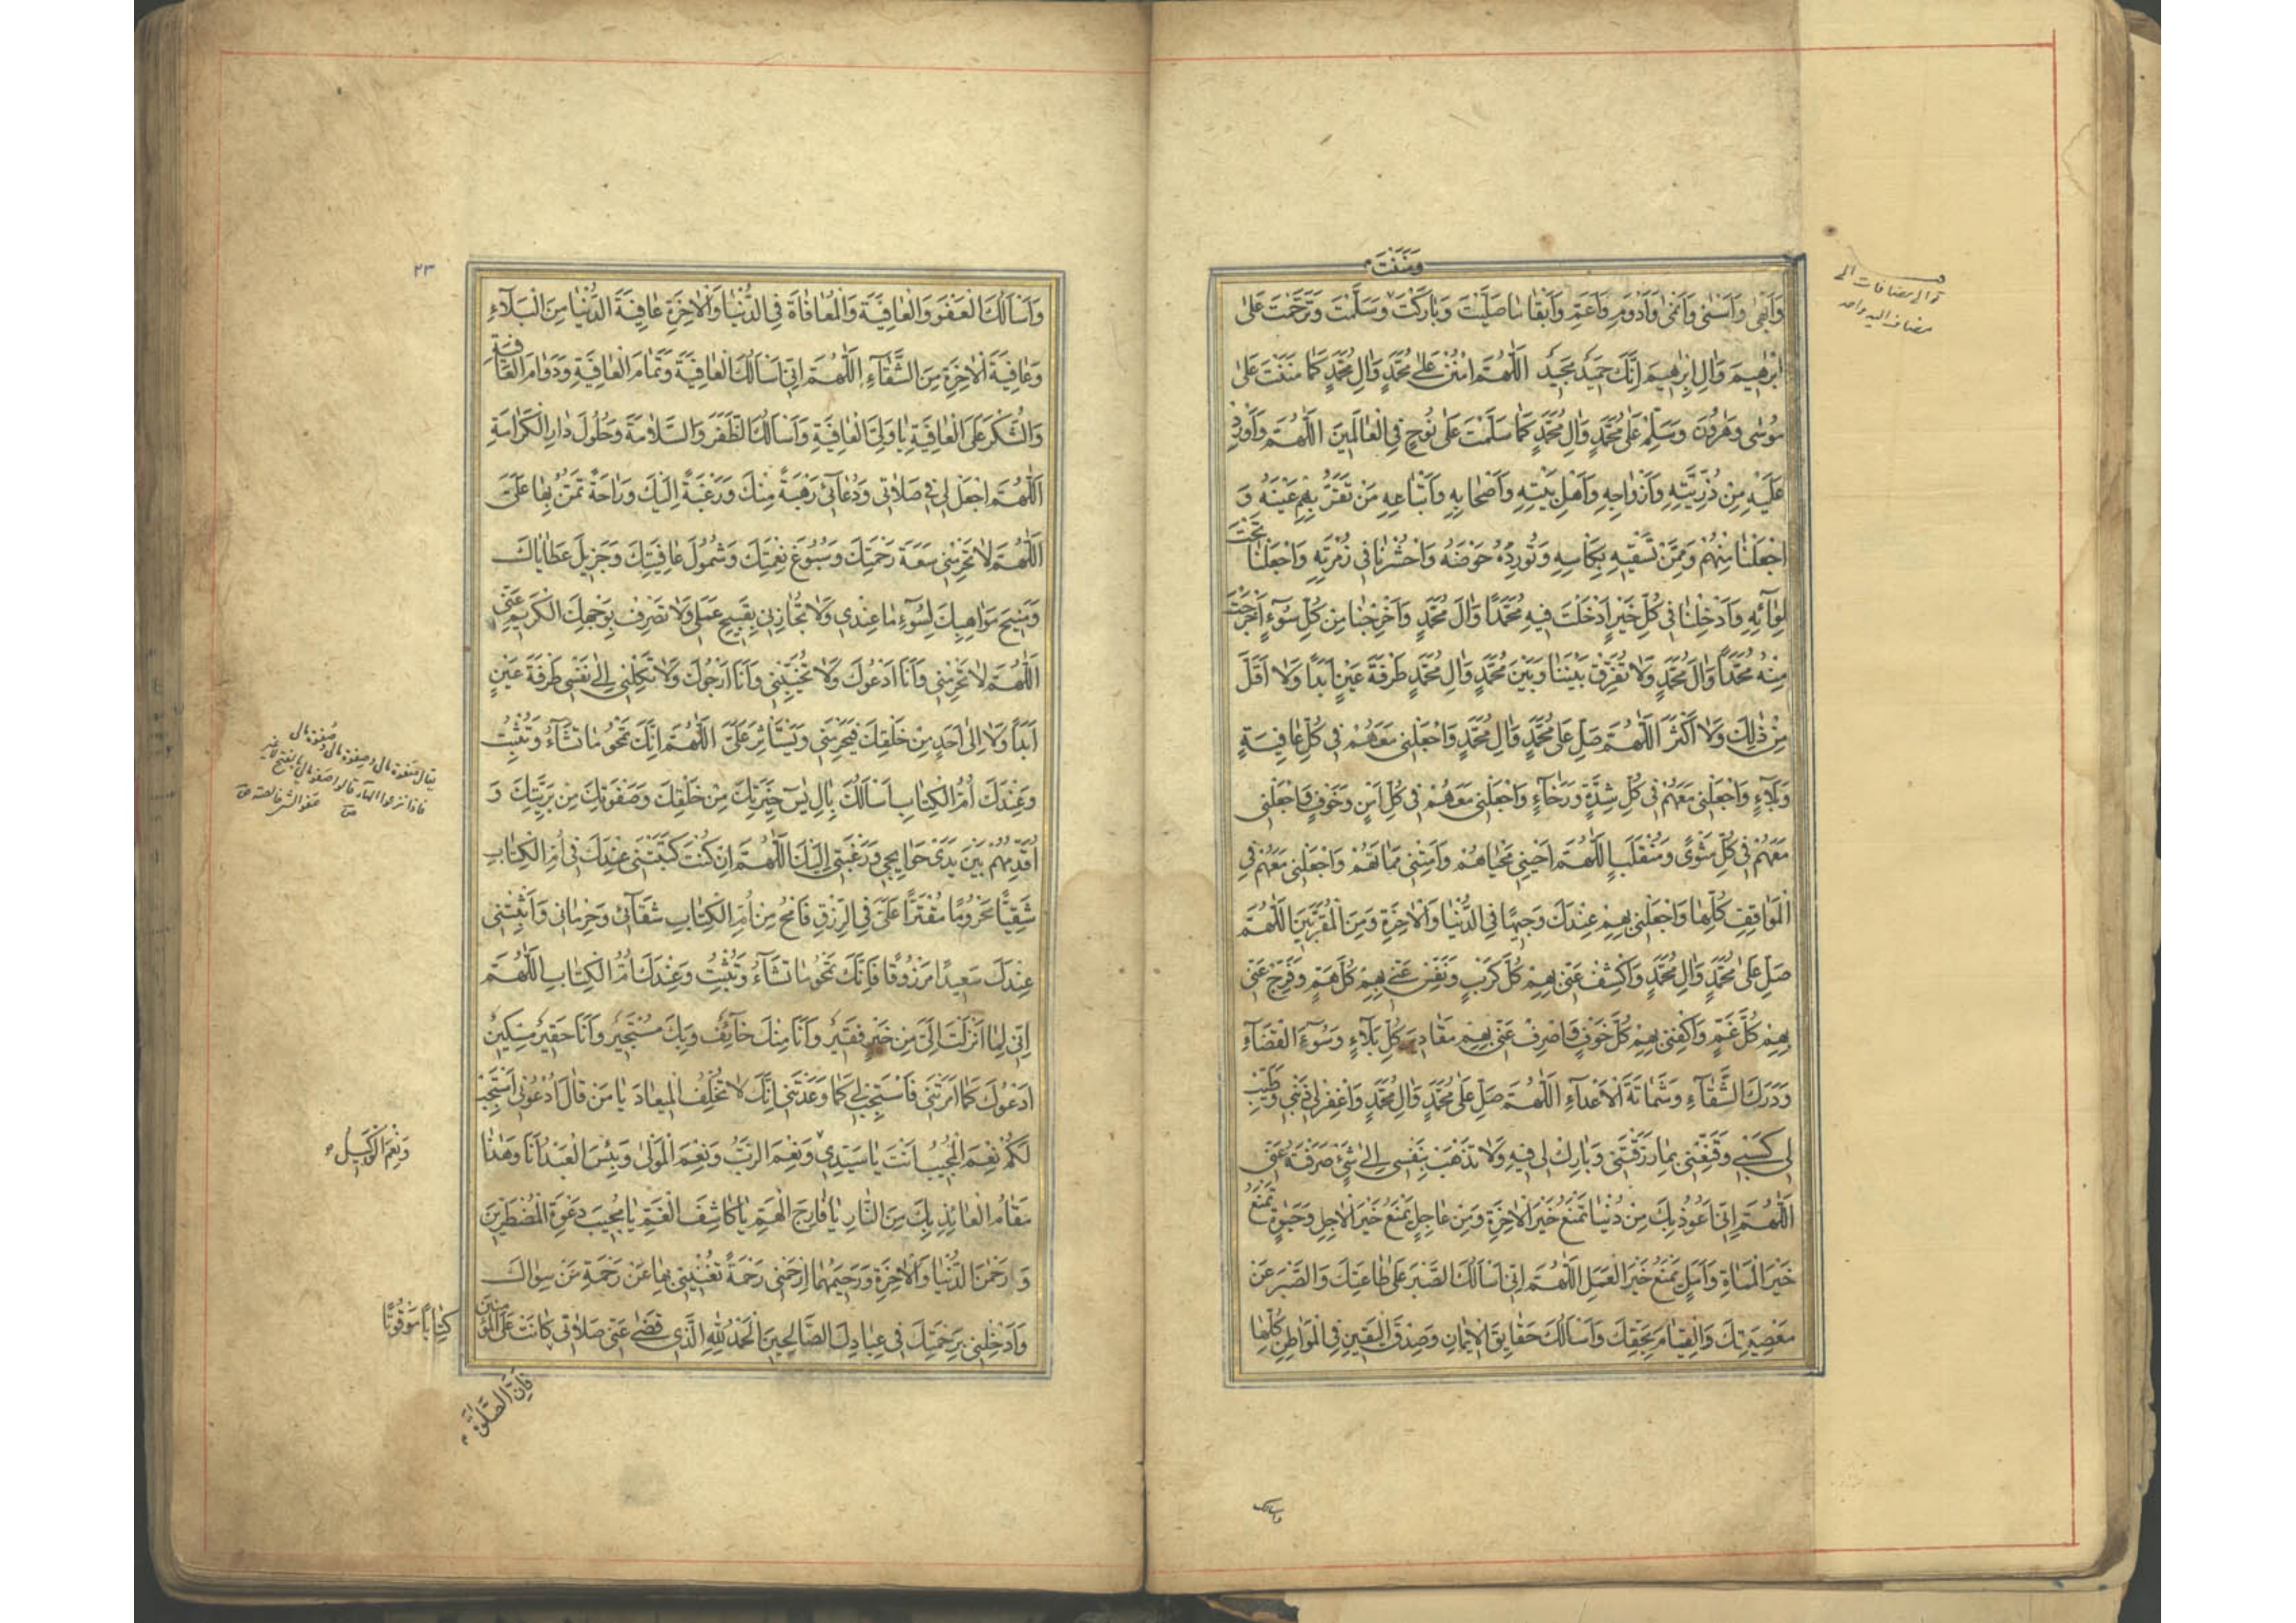 وَمَنَنْتَ
وَاَبْهٰى وَاَسْنٰى وَاَنْمٰى وَاَدْوَمِ وَاَعَمِّ وَاَبْقٰا مٰا صَلَّيْتَ وَبٰارَكْتَ وَسَلَّمْتَ وَتَرَحَّمْتَ عَلىٰ
اِبْرٰهيمَ وَاٰلِ اِبْرٰهيمَ اِنَّكَ حَميدٌ مَجيدٌ اَللّٰهُمَّ امْنُنْ عَلىٰ مُحَمَّدٍ وَاٰلِ مُحَمَّدٍ كَمٰا مَنَنْتَ عَلىٰ
مُوسٰى وَهٰرُونَ وَسَلِّمْ عَلىٰ مُحَمَّدٍ وَاٰلِ مُحَمَّدٍ كَمٰا سَلَّمْتَ عَلىٰ نُوحٍ فِى الْعٰالَمينَ اَللّٰهُمَّ وَاَوْرِدْ
عَلَيْهِ مِنْ ذُرِّيَّتِهِ وَاَزْوٰاجِهِ وَاَهْلِ بَيْتِهِ وَاَصْحٰابِهِ وَاَتْبٰاعِهِ مَنْ تَقَرُّ بِهِمْ عَيْنُهُ وَ
اجْعَلْنٰا مِنْهُمْ وَمِمَّنْ تَسْقيهِ بِكَاْسِهِ وَتُورِدُهُ حَوْضَهُ وَاحْشُرْنٰا فى زُمْرَتِهِ وَاجْعَلْنٰا تَحْتَ
لِوٰائِهِ وَاَدْخِلْنٰا فى كُلِّ خَيْرٍ اَدْخَلْتَ فيهِ مُحَمَّدًا وَاٰلَ مُحَمَّدٍ وَاَخْرِجْنٰا مِنْ كُلِّ سُوٓءٍ اَخْرَجْتَ
مِنْهُ مُحَمَّدًا وَاٰلَ مُحَمَّدٍ وَلٰا تُفَرِّقْ بَيْنَنٰا وَبَيْنَ مُحَمَّدٍ وَاٰلِ مُحَمَّدٍ طَرْفَةَ عَيْنٍ اَبَدًا وَلٰا اَقَلَّ
مِنْ ذٰلِكَ وَلٰا اَكْثَرَ اَللّٰهُمَّ صَلِّ عَلىٰ مُحَمَّدٍ وَاٰلِ مُحَمَّدٍ وَاجْعَلْنى مَعَهُمْ فى كُلِّ عٰافِيَةٍ
وَبَلٰٓاءٍ وَاجْعَلْنى مَعَهُمْ فى كُلِّ شِدَّةٍ وَرَخٰٓاءٍ وَاجْعَلْنى مَعَهُمْ فى كُلِّ اَمْنٍ وَخَوْفٍ وَاجْعَلْنى
مَعَهُمْ فى كُلِّ مَثْوًى وَمُنْقَلَبٍ اَللّٰهُمَّ اَحْيِنى مَحْيٰاهُمْ وَاَمِتْنى مَمٰاتَهُمْ وَاجْعَلْنى مَعَهُمْ فِى
الْمَوٰاقِفِ كُلِّهٰا وَاجْعَلْنى بِهِمْ عِنْدَكَ وَجيهًا فِى الدُّنْيٰا وَالْاٰخِرَةِ وَمِنَ الْمُقَرَّبينَ اَللّٰهُمَّ
صَلِّ عَلىٰ مُحَمَّدٍ وَاٰلِ مُحَمَّدٍ وَاكْشِفْ عَنّى بِهِمْ كُلَّ كَرْبٍ وَنَفِّسْ عَنّى بِهِمْ كُلَّ هَمٍّ وَفَرِّجْ عَنّى
بِهِمْ كُلَّ غَمٍّ وَاكْفِنى بِهِمْ كُلَّ خَوْفٍ وَاصْرِفْ عَنّى بِهِمْ مَقٰاديرَ كُلِّ بَلٰٓاءٍ وَسُوٓءَ الْقَضٰٓاءِ
وَدَرَكَ الشَّقٰٓاءِ وَشَمٰاتَةَ الْاَعْدٰٓاءِ اَللّٰهُمَّ صَلِّ عَلىٰ مُحَمَّدٍ وَاٰلِ مُحَمَّدٍ وَاغْفِرْ لى ذَنْبى وَطَيِّبْ
لى كَسْبى وَقَنِّعْنى بِمٰا رَزَقْتَنى وَبٰارِكْ لى فيهِ وَلٰا تَذْهَبْ بِنَفْسى اِلىٰ شَىْءٍ صَرَفْتَهُ عَنّى
اَللّٰهُمَّ اِنّى اَعُوذُ بِكَ مِنْ دُنْيٰا تَمْنَعُ خَيْرَ الْاٰخِرَةِ وَمِنْ عٰاجِلٍ يَمْنَعُ خَيْرَ الْاٰجِلِ وَحَيٰوةٍ تَمْنَعُ
خَيْرَ الْمَمٰاةِ وَاَمَلٍ يَمْنَعُ خَيْرَ الْعَمَلِ اَللّٰهُمَّ اِنّى اَسْاَلُكَ الصَّبْرَ عَلىٰ طٰاعَتِكَ وَالصَّبْرَ عَنْ
مَعْصِيَتِكَ وَالْقِيٰامَ بِحَقِّكَ وَاَسْاَلُكَ حَقٰايِقَ الْاٖيمٰانِ وَصِدْقَ الْيَقينِ فِى الْمَوٰاطِنِ كُلِّهٰا
واسالك
٢٣
وَاَسْاَلُكَ الْعَفْوَ وَالْعٰافِيَةَ وَالْمُعٰافٰاةَ فِى الدُّنْيٰا وَالْاٰخِرَةِ عٰافِيَةَ الدُّنْيٰا مِنَ الْبَلٰٓاءِ
وَعٰافِيَةَ الْاٰخِرَةِ مِنَ الشَّقٰٓاءِ اَللّٰهُمَّ اِنّى اَسْاَلُكَ الْعٰافِيَةَ وَتَمٰامَ الْعٰافِيَةِ وَدَوٰامَ الْعٰافِيَةِ
وَالشُّكْرَ عَلَى الْعٰافِيَةِ يٰا وَلِىَّ الْعٰافِيَةِ وَاَسْاَلُكَ الظَّفَرَ وَالسَّلٰامَةَ وَحُلُولَ دٰارِ الْكَرٰامَةِ
اَللّٰهُمَّ اجْعَلْ لى فى صَلٰاتى وَدُعٰآئى رَهْبَةً مِنْكَ وَرَغْبَةً اِلَيْكَ وَرٰاحَةً تَمُنُّ بِهٰا عَلَىَّ
اَللّٰهُمَّ لٰا تَحْرِمْنى سَعَةَ رَحْمَتِكَ وَسُبُوغَ نِعْمَتِكَ وَشُمُولَ عٰافِيَتِكَ وَجَزيلَ عَطٰايٰاكَ
وَمَنِيحَ مَوٰاهِبِكَ لِسُوٓءِ مٰا عِنْدى وَلٰا تُجٰازِنى بِقَبيحِ عَمَلى وَلٰا تَصْرِفْ بِوَجْهِكَ الْكَريمِ عَنّى
اَللّٰهُمَّ لٰا تَحْرِمْنى وَاَنَا اَدْعُوكَ وَلٰا تُخَيِّبْنى وَاَنَا اَرْجُوكَ وَلٰا تَكِلْنى اِلىٰ نَفْسى طَرْفَةَ عَيْنٍ
اَبَدًا وَلٰا اِلىٰ اَحَدٍ مِنْ خَلْقِكَ فَيَحْرِمَنى وَيَسْتَاْثِرَ عَلَىَّ اَللّٰهُمَّ اِنَّكَ تَمْحُو مٰا تَشٰٓاءُ وَتُثْبِتُ
وَعِنْدَكَ اُمُّ الْكِتٰابِ اَسْاَلُكَ بِاٰلِ يٰسٓ خِيَرَتِكَ مِنْ خَلْقِكَ وَصَفْوَتِكَ مِنْ بَرِيَّتِكَ وَ
اُقَدِّمُهُمْ بَيْنَ يَدَىْ حَوٰايِجى وَرَغْبَتى اِلَيْكَ اَللّٰهُمَّ اِنْ كُنْتَ كَتَبْتَنى عِنْدَكَ فى اُمِّ الْكِتٰابِ
شَقِيًّا مَحْرُومًا مُقَتَّرًا عَلَىَّ فِى الرِّزْقِ فَامْحُ مِنْ اُمِّ الْكِتٰابِ شَقٰآئى وَحِرْمٰانى وَاَثْبِتْنى
عِنْدَكَ سَعيدًا مَرْزُوقًا فَاِنَّكَ تَمْحُو مٰا تَشٰٓاءُ وَتُثْبِتُ وَعِنْدَكَ اُمُّ الْكِتٰابِ اَللّٰهُمَّ
اِنّى لِمٰا اَنْزَلْتَ اِلَىَّ مِنْ خَيْرٍ فَقيرٌ وَاَنَا مِنْكَ خٰآئِفٌ وَبِكَ مُسْتَجيرٌ وَاَنَا حَقيرٌ مِسْكينٌ
اَدْعُوكَ كَمٰا اَمَرْتَنى فَاسْتَجِبْ لى كَمٰا وَعَدْتَنى اِنَّكَ لٰا تُخْلِفُ الْميعٰادَ يٰا مَنْ قٰالَ اُدْعُونى اَسْتَجِبْ
لَكُمْ نِعْمَ الْمُجيبُ اَنْتَ يٰا سَيِّدى وَنِعْمَ الرَّبُّ وَنِعْمَ الْمَوْلىٰ وَبِئْسَ الْعَبْدُ اَنَا وَهٰذٰا
وَنِعْمَ الْوَكيلُ
مَقٰامُ الْعٰائِذِ بِكَ مِنَ النّٰارِ يٰا فٰارِجَ الْهَمِّ يٰا كٰاشِفَ الْغَمِّ يٰا مُجيبَ دَعْوَةِ الْمُضْطَرّينَ
وَ رَحْمٰنَ الدُّنْيٰا وَالْاٰخِرَةِ وَرَحيمَهُمٰا اِرْحَمْنى رَحْمَةً تُغْنينى بِهٰا عَنْ رَحْمَةِ مَنْ سِوٰاكَ
وَاَدْخِلْنى بِرَحْمَتِكَ فى عِبٰادِكَ الصّٰالِحينَ اَلْحَمْدُ لِلّٰهِ الَّذى قَضىٰ عَنّى صَلٰاتى كٰانَتْ عَلَى الْمُؤْمِنينَ
كِتٰابًا مَوْقُوتًا
فَاِنَّ الصَّلٰوةَ